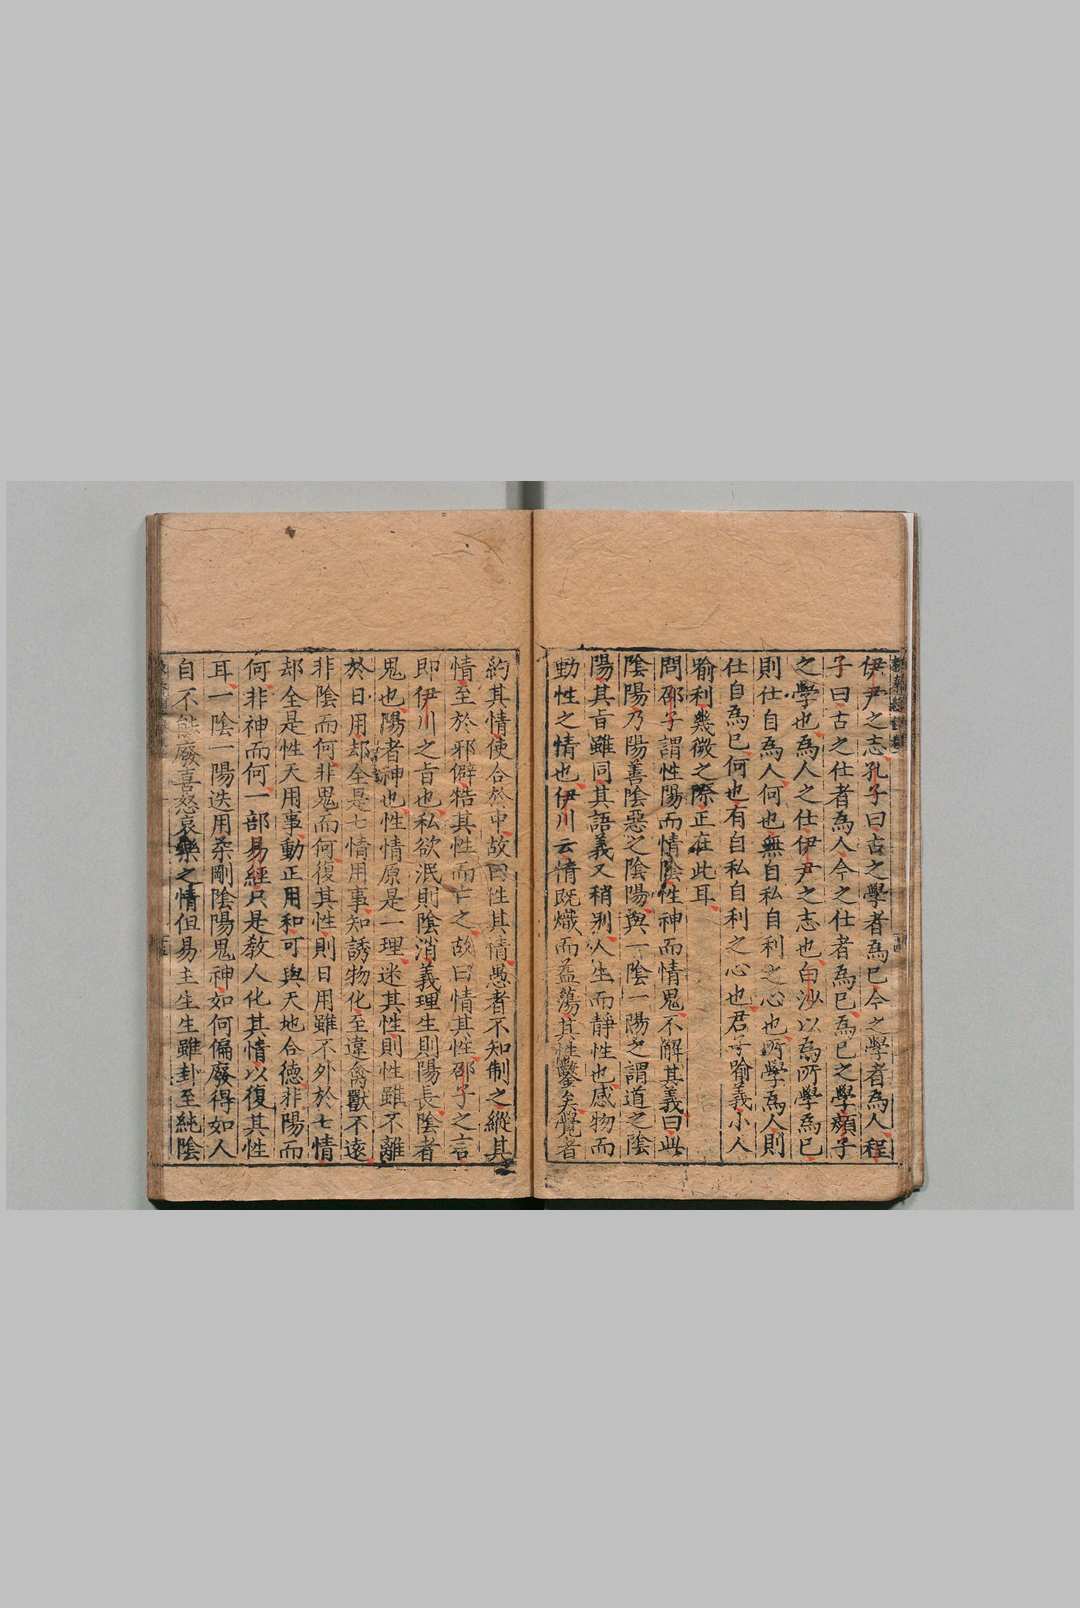 伊尹之志孔子曰古之學者爲己今之學者爲人程
子曰古之仕者爲人今之仕者爲己爲己之學顏子
之學也爲人之仕伊尹之志也白沙以爲所學爲己
則仕自爲人何也無自私自利之心也所學爲人則
仕自爲己何也有自私自利之心也君子喻義小人
喻利幾微之際正在此耳
問邵子謂性陽而情陰性神而情鬼不解其義曰此
陰陽乃陽善陰惡之陰陽與一陰一陽之謂道之陰
陽其旨雖同其語義又稍別人生而靜性也感物而
動性之情也伊川云情既熾而益蕩其性鑿矣覺者
約其情使合於中故曰性其情愚者不知制之縱其
情至於邪僻牿其性而亡之故曰情其性邵子之言
即伊川之旨也私欲泯則陰消義理生則陽長陰者
鬼也陽者神也性情原是一理迷其性則性雖不離
於日用却全是七情用事知誘物化至違禽獸不遠
非陰而何非鬼而何復其性則日用雖不外於七情
却全是性天用事動正用和可與天地合德非陽而
何非神而何一部易經只是教人化其情以復其性
耳一陰一陽迭用柔剛陰陽鬼神如何偏廢得如人
自不能廢喜怒哀樂之情但易主生生雖卦至純陰